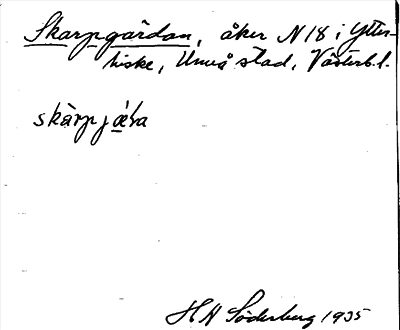 Skarpgärdan, åker N 18 i Ytter-
hiske, Umeå stad, Västerb. l.
skàrpjǽra
H H Söderberg 1935